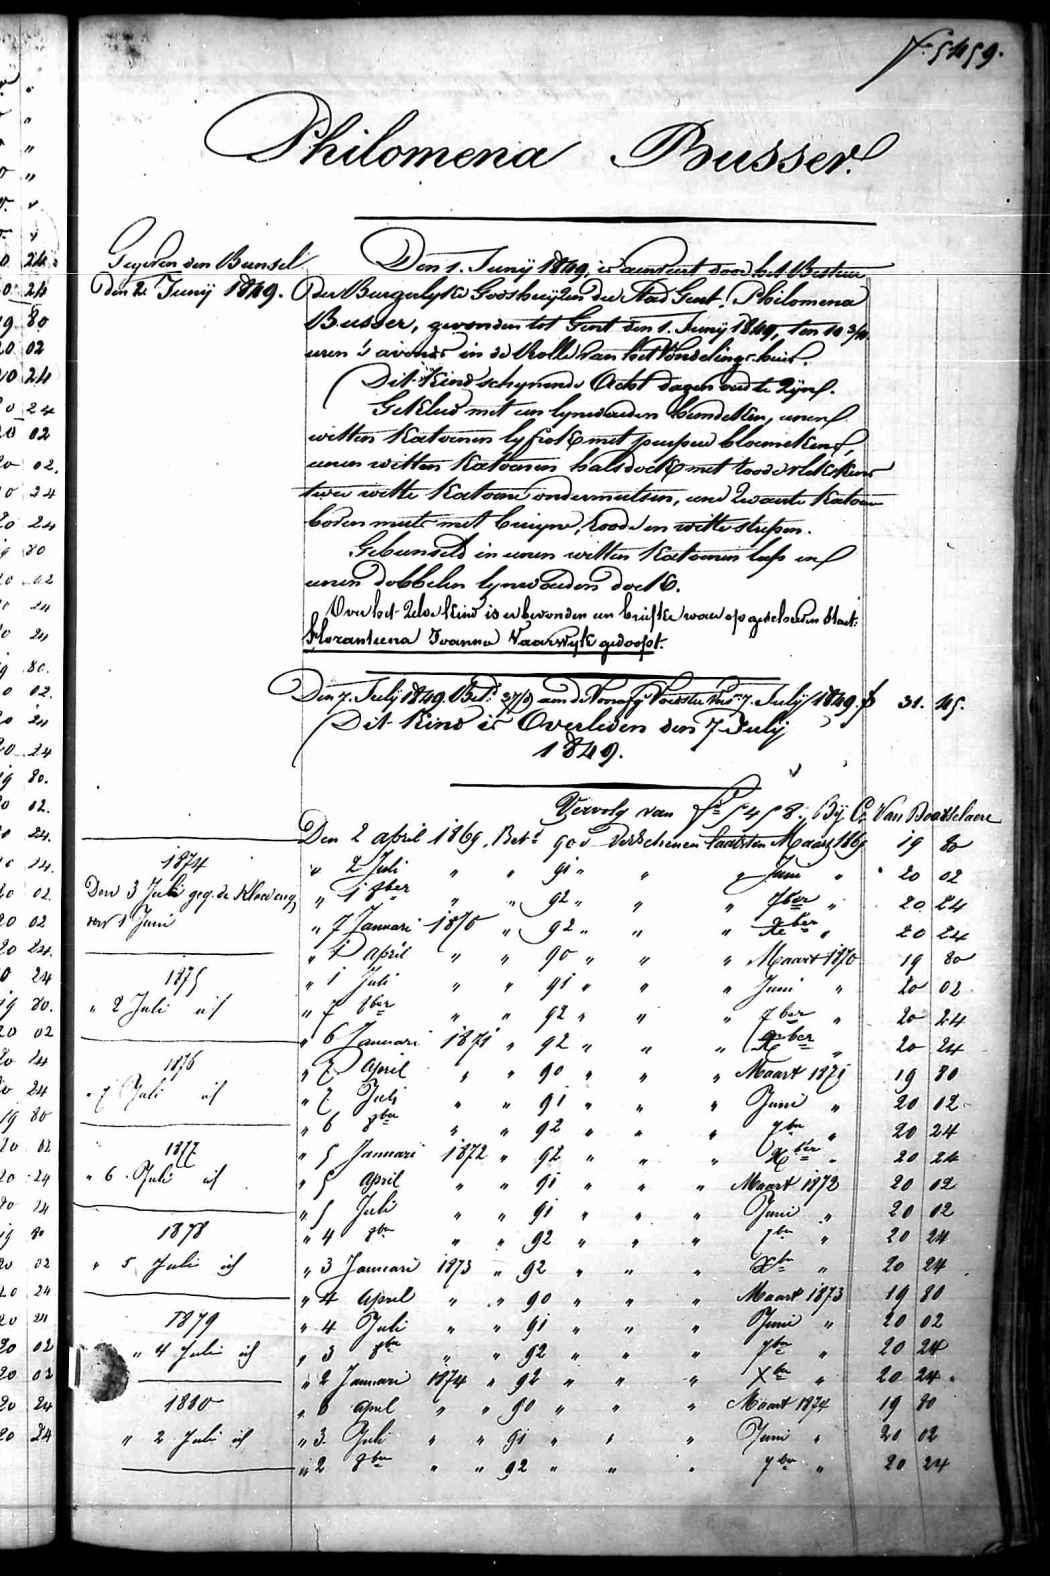 f. 5459.
Philomena Busser.
Gegeven den Bunsel
den 2. Junij 1849.
Den 1. Junij 1849, is aenveert door het Bestuer
der Burgerlyke Godshuyzen der Stad Gent, Philomena
Busser, gevonden tot Gent den 1. Junij 1849, ten 10 3/4
uren 's avonds in de Rolle van het Vondelingshuis.
Dit Kind schynende Acht dagen oud te Zyn.
Gekleed met een lynwaeden hemdeken, eenen
witten Katoenen lyfrok met purper bloemekens,
eenen witten Katoenen halsdoek met roode vlekskens
twee witte Katoene ondermutsen, eene Zwarte Katoene
boven muts met bruyne, roode en witte strepen.
Gebunseld in eenen witten Katoenen lap en
eenen dobbelen lynwaeden doek.
Over het Zelve Kind is er bevonden een briefke waer op geschreven staet:
Floranteena Joanna Vaarwyk gedoopt.
Den 7. Julij 1849. Bet. 37/d aen de Voorafg. Voedster Vers. 7. Julij 1849. f 31. 45.
Dit Kind is Overleden den 7 Julij
1849.
Vervolg van f 5458. By C. Van Booxselaere
Den 2 april 1869. Bet. 90 d Verschenen laatsten Maart 1869 19 80
" 2 Juli " " 91 " " " Juni " 20 02
" 1 8ber " 92 " " " 7ber " 20 24
" 7 Januari 1870 " 92 " " " Xber " 20 24
" 1 april " " 90 " " " Maart 1870 19 80
" 1 Juli " " 91 " " " Juni " 20 02
" 7 8ber " " 92 " " " 7ber " 20 24
" 6 Januari 1871 " 92 " " " Xber " 20 24
" 7 april " " 90 " " " Maart 1871 19 80
" 7 Juli " " 91 " " " Juni " 20 02
" 6 8ber " " 92 " " " 7ber " 20 24
" 5 Januari 1872 " 92 " " " Xber " 20 24
" 5 april " " 91 " " " Maart 1872 20 02
" 5 Juli " " 91 " " " Juni " 20 02
" 4 8ber " " 92 " " " 7ber " 20 24
" 3 Januari 1873 " 92 " " " Xber " 20 24
" 4 april " " 90 " " " Maart 1873 19 80
" 4 Juli " " 91 " " " Juni " 20 02
" 3 8ber " " 92 " " " 7ber " 20 24
" 2 Januari 1874 " 92 " " " Xber " 20 24
" 6 april " " 90 " " " Maart 1874 19 80
" 3 Juli " " 91 " " " Juni " 20 02
" 2 8ber " " 92 " " " 7ber " 20 24
1874
Den 3 Juli geg. de Kleeding
van 1 Juni
1875
" 2 Juli id
1876
" 7 Juli id
1877
" 6 Juli id
1878
" 5 Juli id
1879
" 4 Juli id
1880
" 2 Juli id